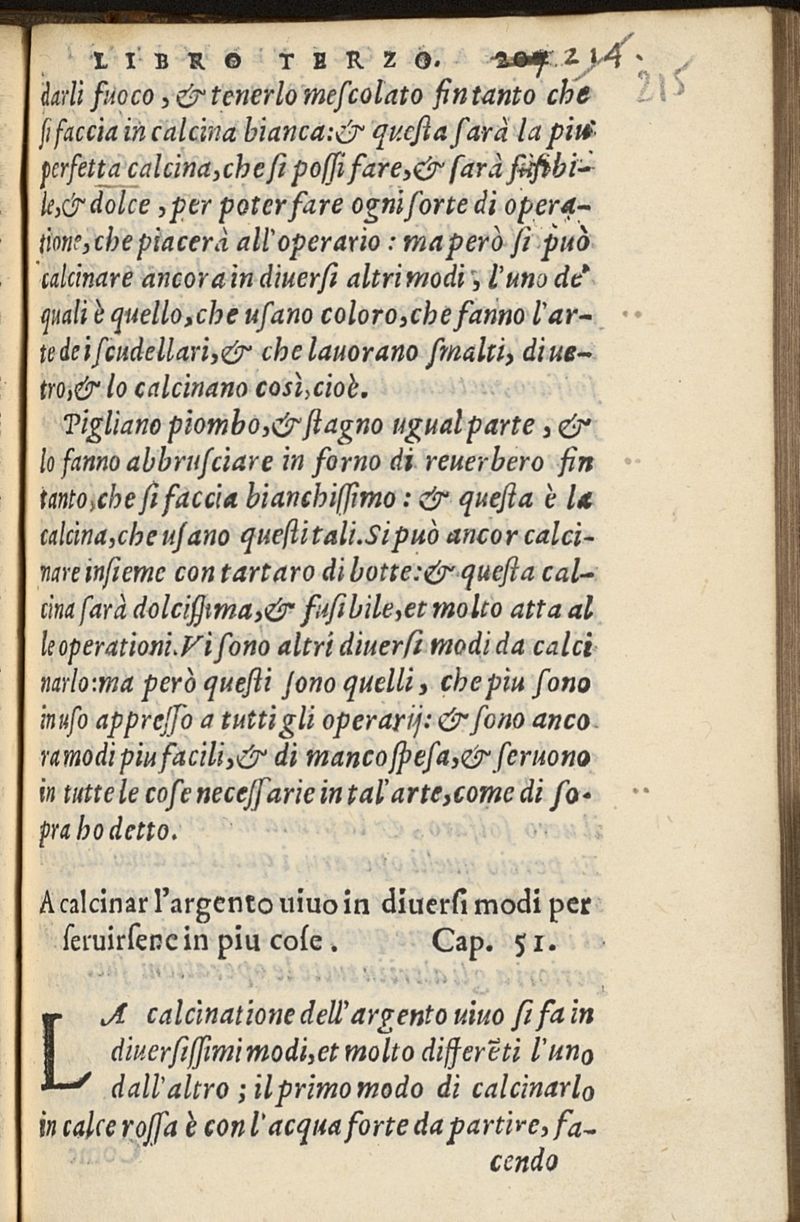 LIBRO TERZO. 207 214.
215
darli fuoco, & tenerlo meſcolato fin tanto che
ſi faccia in calcina bianca: & queſta ſarà la piu
perfetta calcina, che ſi poſſi fare, & ſarà fuſibi-
le, & dolce, per poter fare ogni ſorte di opera-
tione, che piacerà all'operario: ma però ſi può
calcinare ancora in diuerſi altri modi, l'uno de'
quali è quello, che uſano coloro, che fanno l'ar-
te de i ſcudellari, & che lauorano ſmalti, di ue-
tro, & lo calcinano così, cioè.
Pigliano piombo, & ſtagno ugual parte, &
lo fanno abbruſciare in forno di reuerbero fin
tanto, che ſi faccia bianchiſſimo: & queſta è la
calcina, che uſano queſti tali. Si può ancor calci-
nare inſieme con tartaro di botte: & queſta cal-
cina ſarà dolciſſima, & fuſibile, et molto atta al
le operationi. Vi ſono altri diuerſi modi da calci
narlo: ma però queſti ſono quelli, che piu ſono
in uſo appreſſo a tutti gli operarij: & ſono anco
ra modi piu facili, & di manco ſpeſa, & ſeruono
in tutte le coſe neceſſarie in tal'arte, come di ſo-
pra ho detto.
A calcinar l'argento uiuo in diuerſi modi per
ſeruirſene in piu coſe. Cap. 51.
LA calcinatione dell'argento uiuo ſi fa in
diuerſiſſimi modi, et molto differẽti l'uno
dall'altro; il primo modo di calcinarlo
in calce roſſa è con l'acqua forte da partire, fa-
cendo